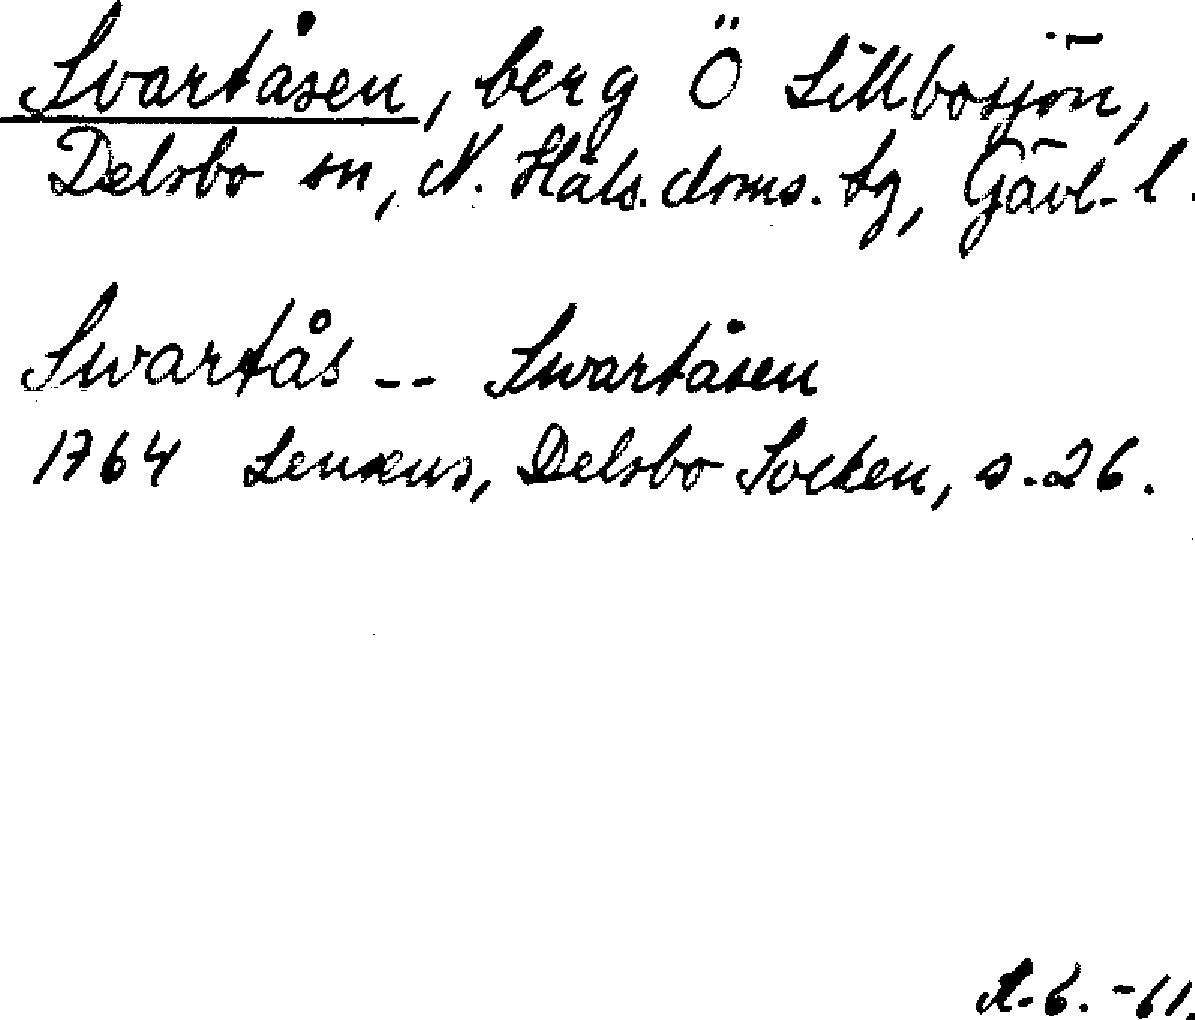 Svartåsen, berg Ö Lillbosjön,
Delsbo sn, N. Häls. doms. tg, Gävl. l.
Swartås -- Swartåsen
1764 Lenæus, Delsbo Socken, s. 26.
-61.